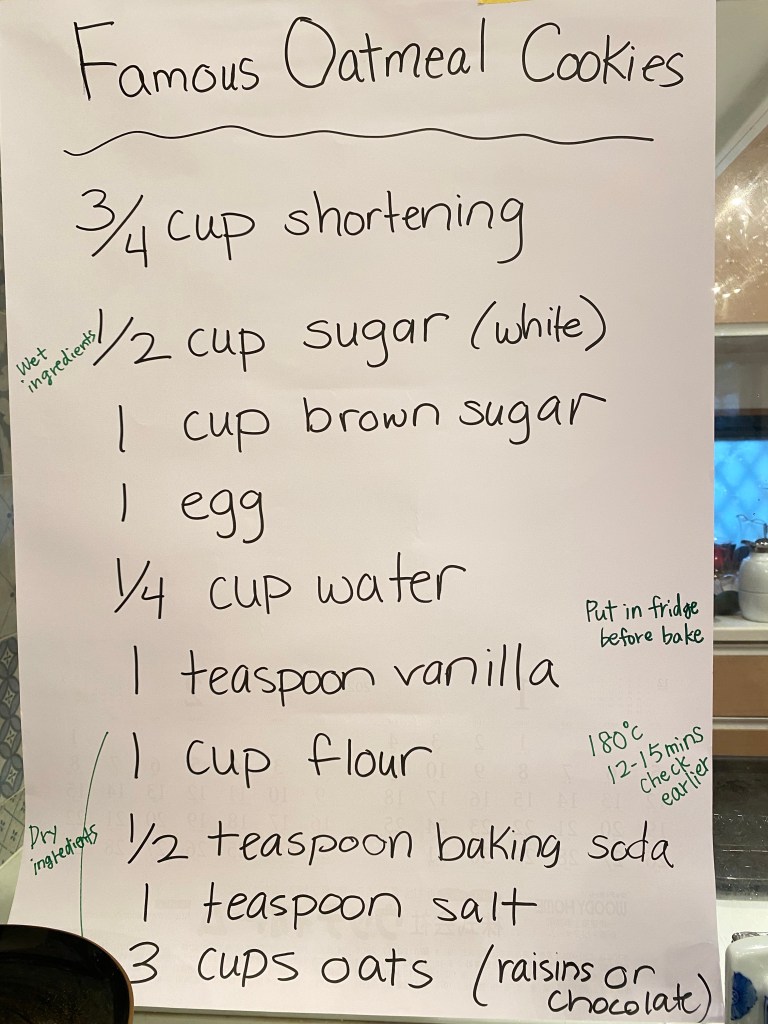 Famous Oatmeal Cookies
3/4 cup shortening
Wet
ingredients
1/2 cup sugar (white)
1 cup brown sugar
1 egg
1/4 cup water
Put in fridge
before bake
1 teaspoon vanilla
1 cup flour
180°c
12-15 mins
check
earlier
Dry
ingredients
1/2 teaspoon baking soda
1 teaspoon salt
3 cups oats (raisins or
chocolate)